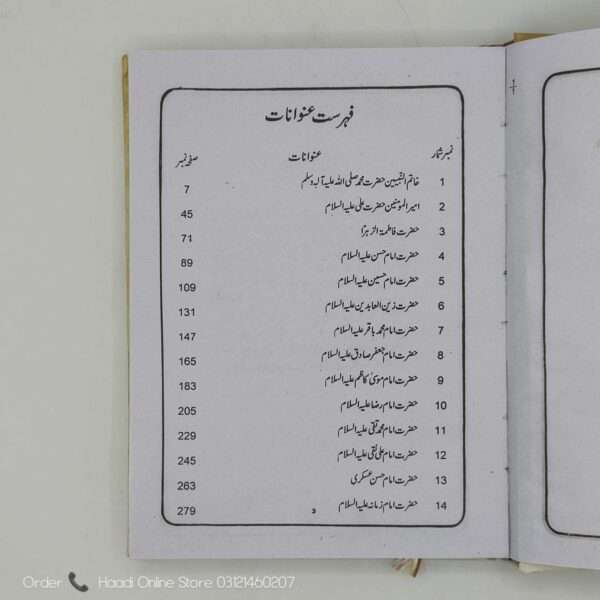 فہرست عنوانات
نمبر شمار عنوانات صفحہ نمبر
1 خاتم النبیین حضرت محمد صلی اللہ علیہ وآلہ وسلم 7
2 امیر المومنین حضرت علی علیہ السلام 45
3 حضرت فاطمۃ الزہرا 71
4 حضرت امام حسن علیہ السلام 89
5 حضرت امام حسین علیہ السلام 109
6 حضرت زین العابدین علیہ السلام 131
7 حضرت امام محمد باقر علیہ السلام 147
8 حضرت امام جعفر صادق علیہ السلام 165
9 حضرت امام موسیٰ کاظم علیہ السلام 183
10 حضرت امام رضا علیہ السلام 205
11 حضرت امام محمد تقی علیہ السلام 229
12 حضرت امام علی نقی علیہ السلام 245
13 حضرت امام حسن عسکری 263
14 حضرت امام زمانہ علیہ السلام 279
3
Order Haadi Online Store 03121460207